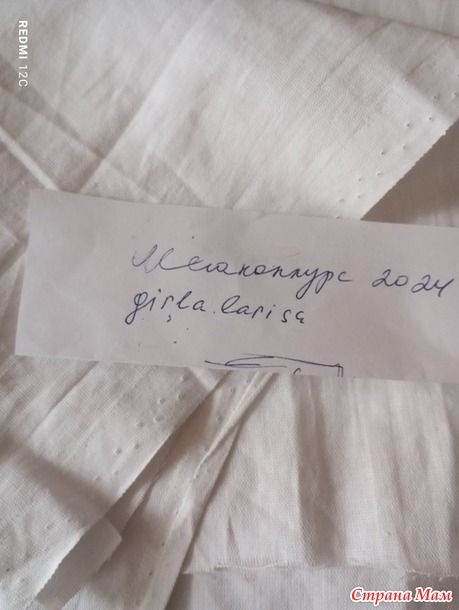 REDMI 12C
Мегаконкурс 2024
girla.larisa
Страна Мам